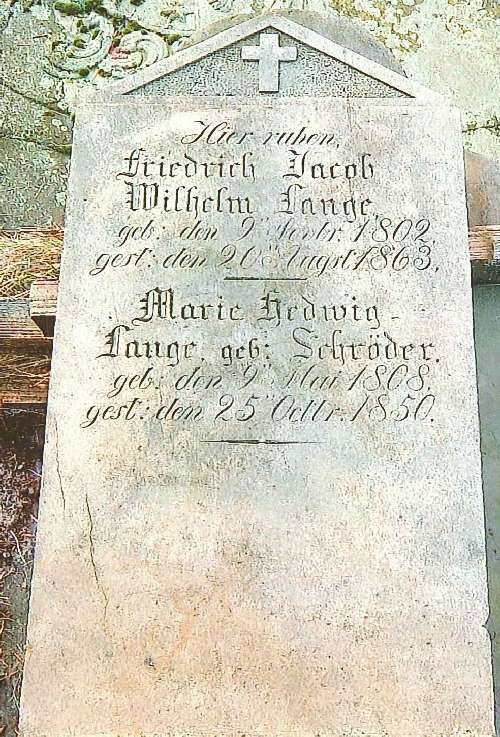 Hier ruhen,
Friedrich Jacob
Wilhelm Lange,
geb: den 9ten Septr. 1802.
gest: den 20ten Augst 1863.
Marie Hedwig
Lange, geb: Schröder.
geb: den 9ten Mai 1808.
gest: den 25ten Octbr. 1850.